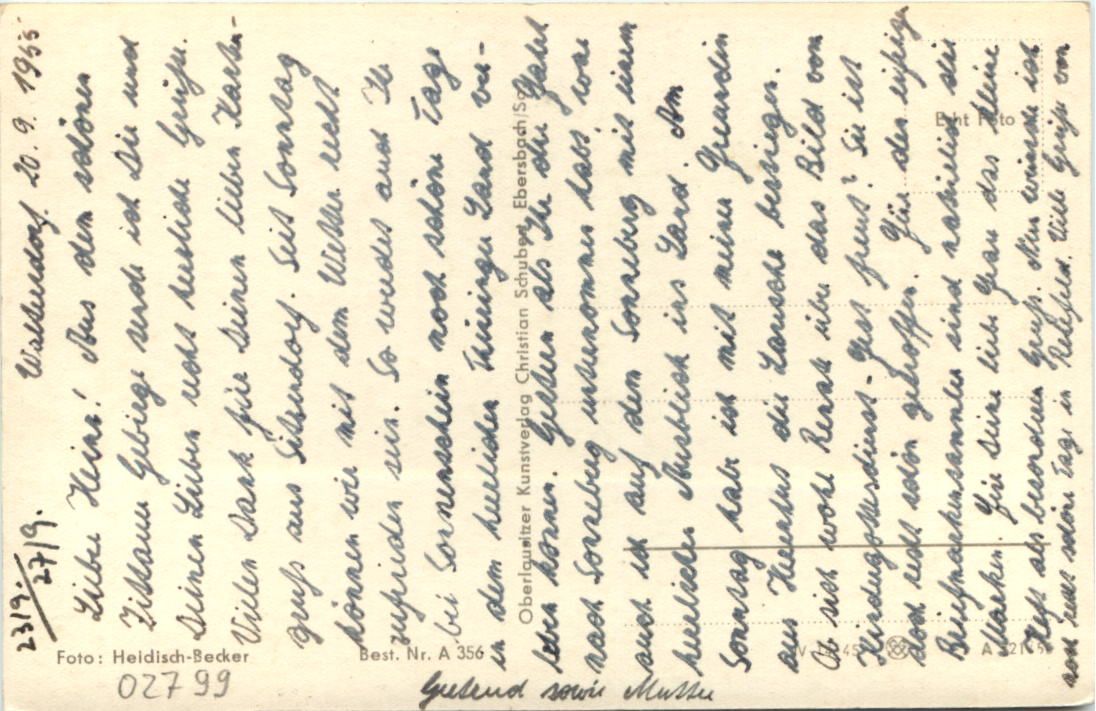 Waltersdorf 20. 9. 1955
23/9. 27/9.
Lieber Heinz! Aus dem schönen
Zittauer Gebirge sende ich Dir und
Deinen Lieben recht herzliche Grüße.
Vielen Dank für Deinen lieben Karten-
gruß aus Sitzendorf. Seit Sonntag
können wir mit dem Wetter recht
zufrieden sein. So wurdet auch Ihr
bei Sonnenschein noch schöne Tage
in dem herrlichen Thüringer Land ver-
leben können. Gestern als Ihr die Fahrt
nach Sonneberg unternommen habt war
auch ich auf dem Sonneberg mit einem
herrlichen Ausblick ins Land. Am
Sonntag habe ich mit meiner Freundin
aus Herrnhut die Lausche bestiegen.
Ob sich wohl Renate über das Bild vom
Kindergottesdienst-Fest freut? Sie ist
doch recht schön getroffen. Für den eifrigen
Briefmarkensammler sind natürlich die
Marken. Für Deine liebe Frau das kleine
Heft als besonderen Gruß. Nun wünsche ich
noch recht schöne Tage in Viele Grüße von
Gertrud sowie Mutter
Oberlausitzer Kunstverlag Christian Schubert, Ebersbach/Sa.
Echt Foto
Foto: Heidisch-Becker
Best. Nr. A 356
02799